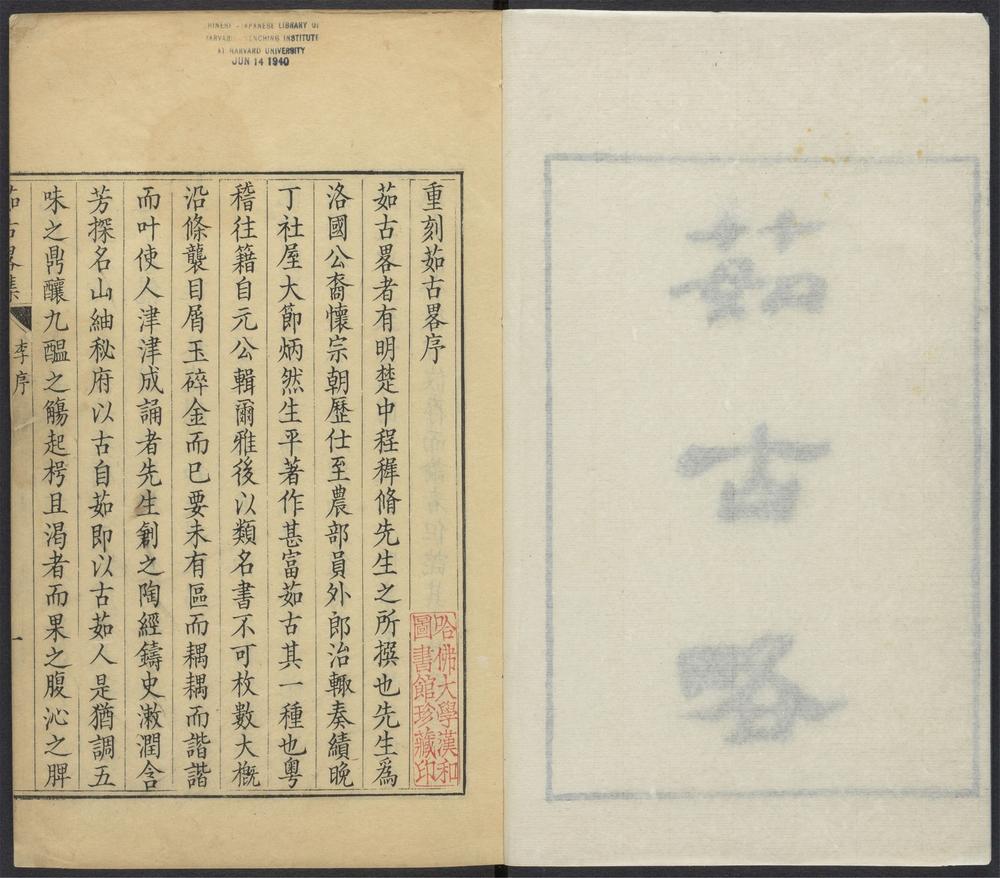 茹古略
重刻茹古畧序
茹古畧者有明楚中程穉脩先生之所撰也先生爲
洛國公裔懷宗朝歷仕至農部員外郎治輙奏績晚
丁社屋大節炳然生平著作甚富茹古其一種也粤
稽往籍自元公輯爾雅後以類名書不可枚數大槪
沿條襲目屑玉碎金而已要未有區而耦耦而諧諧
而叶使人津津成誦者先生創之陶經鑄史漱潤含
芳探名山紬秘府以古自茹即以古茹人是猶調五
味之鼎釀九醖之觴起枵且渴者而果之腹沁之脾
茹古畧集
李序
一
哈佛大學漢和
圖書館珍藏印
CHINESE - JAPANESE LIBRARY OF
HARVARD - YENCHING INSTITUTE
AT HARVARD UNIVERSITY
JUN 14 1940